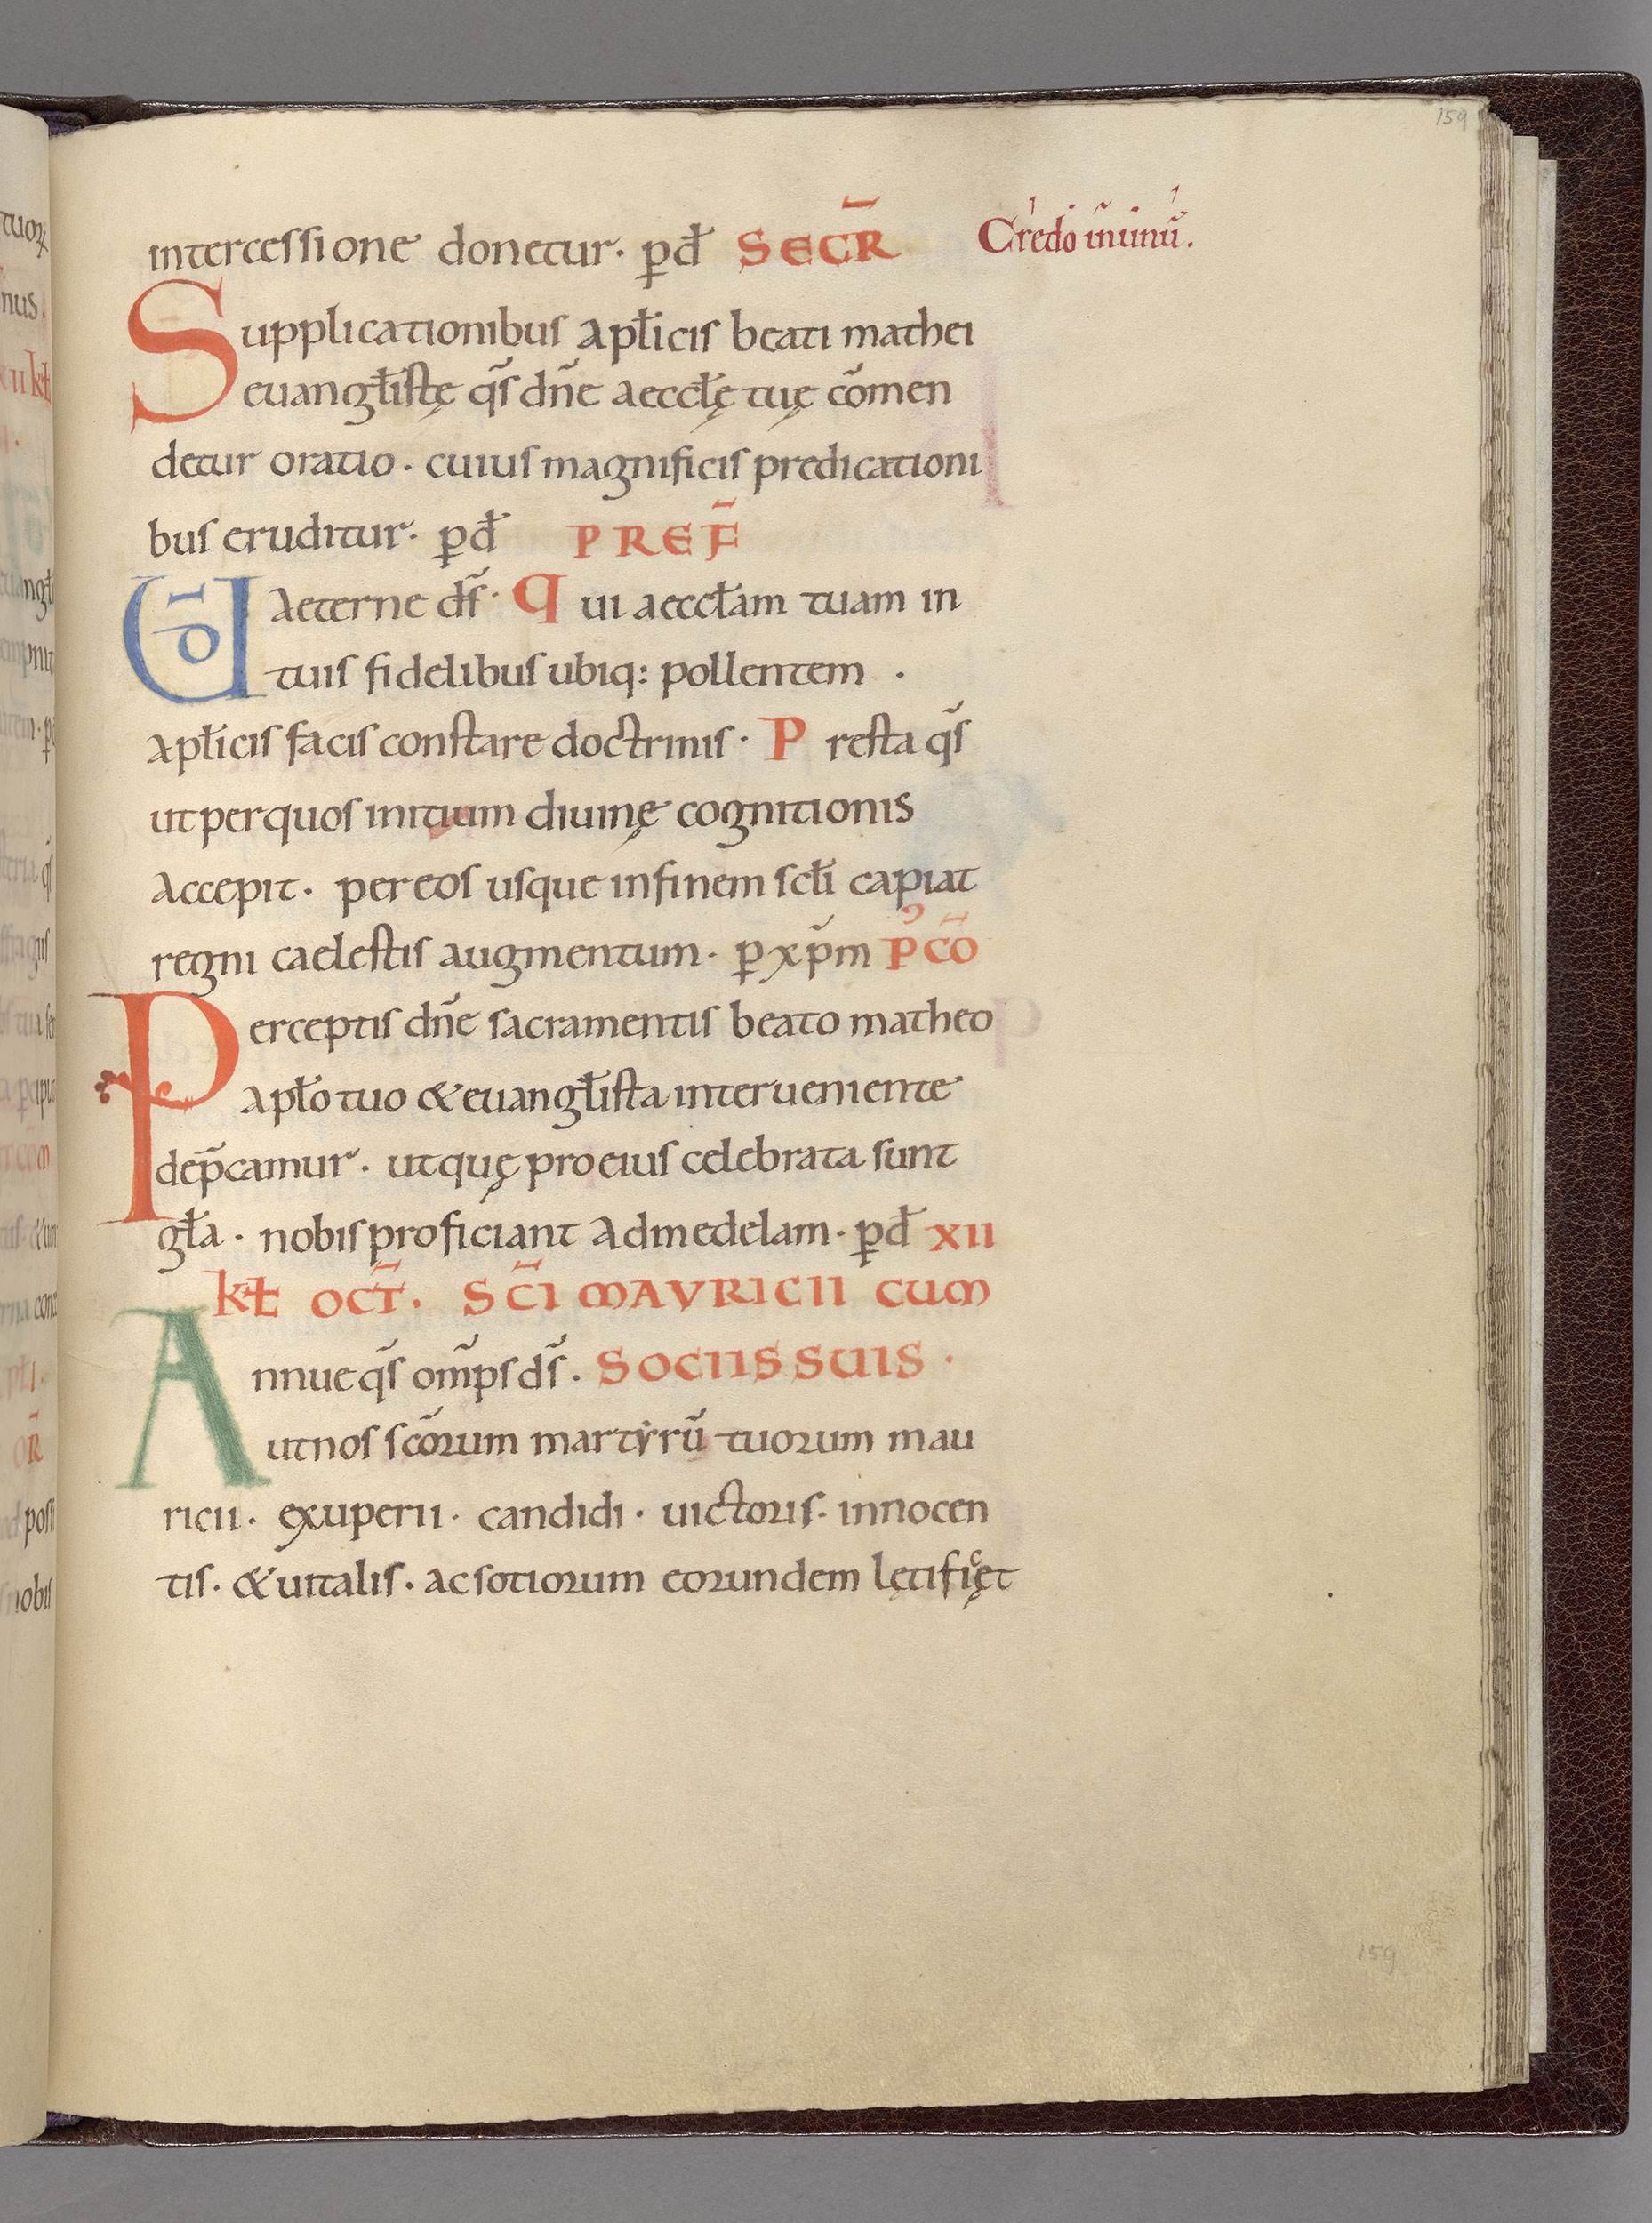 159
intercessione donetur· p̱d̄ SECR̄
Credo in unū.
Supplicationibus apłicis beati mathei
euangłistę q̄s dn̄e aeccłę tuę cōmen
detur oratio· cuius magnificis predicationi
bus eruditur· p̱d̄ PREF̄
UD̄ aeterne ds̄· Qui aeccłam tuam in
tuis fidelibus ubiq: pollentem ·
apłicis facis constare doctrinis· Presta q̄s
ut per quos initium diuinę cognitionis
accepit· per eos usque in finem scłi capiat
regni caelestis augmentum· p̱ xp̄m P᾿CŌ
Perceptis dn̄e sacramentis beato matheo
apło tuo & euangłista interueniente
dep̄camur· ut quę pro eius celebrata sunt
gła· nobis proficiant ad medelam· p̱d̄ XII
kł OCT̄· SC̄I MAVRICII CUM
Annue q̄s om̄ps ds̄· SOCIIS SUIS·
ut nos scōrum martyrū tuorum mau
ricii· exuperii· candidi· uictoris· innocen
tis· & uitalis· ac sotiorum eorundem lętificęt
159